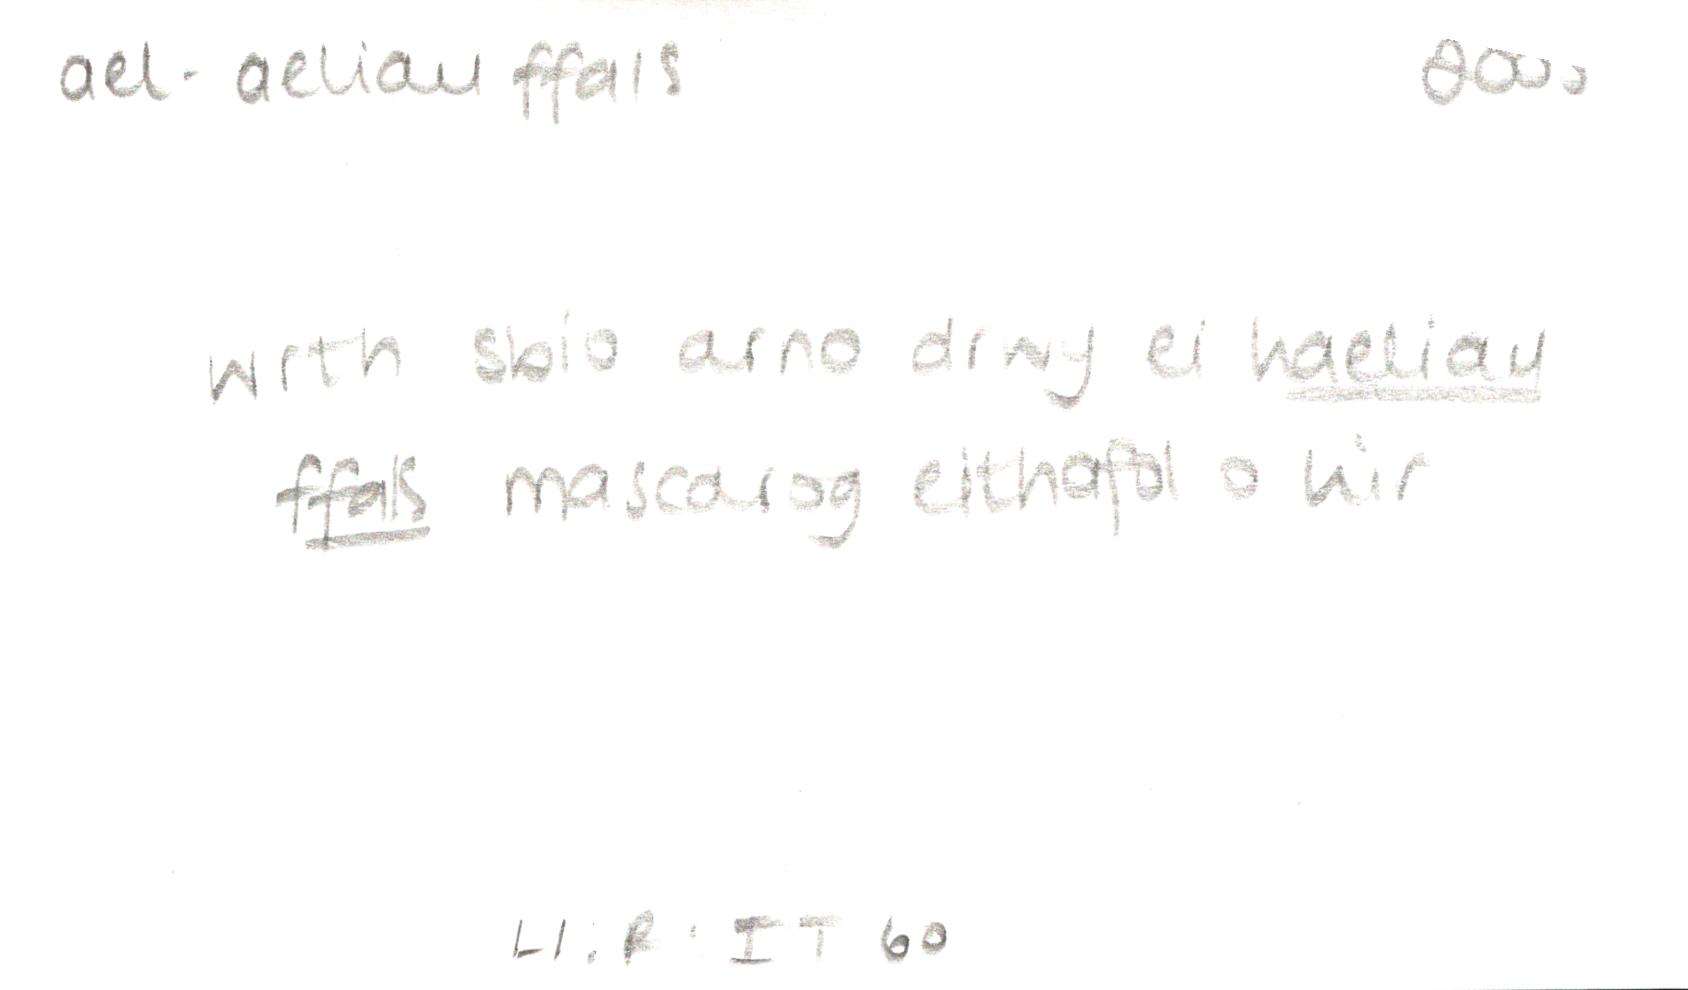 ael - aeliau ffals 2000
wrth sbio arno drwy ei haeliau
ffals mascarog eithafol o hir
Ll:R: IT 60